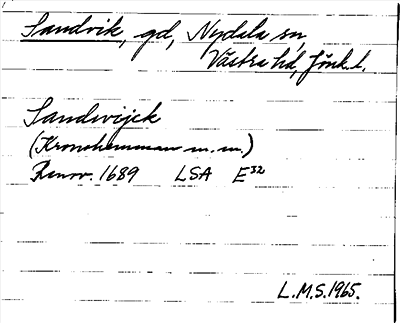 Sandvik, gd, Nydala sn,
Västra hd, Jönk. l.
Sandwijck
(Kronohemman m. m.)
Renov. 1689 LSA E³²
L.M.S. 1965.